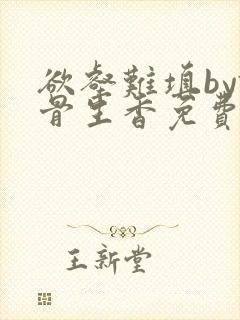 欲壑難填by
骨里香免費
王新堂